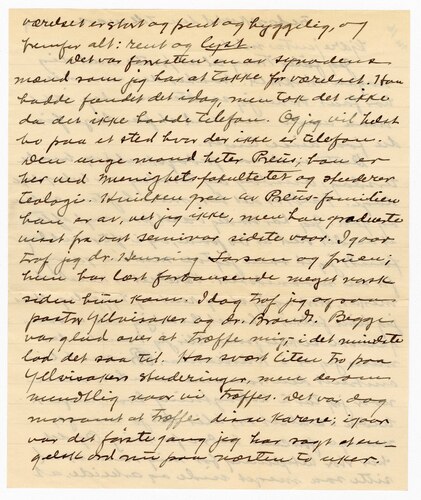 værelset er stort og pent og hyggelig, og
fremfor alt: rent og lyst.
Det var forresten en av synodens
mænd som jeg har at takke for værelset. Han
hadde fundet det idag, men tok det ikke
da det ikke hadde telefon. Og jeg vil helst
bo paa et sted hvor der ikke er telefon.
Den unge mand heter Preus; han er
her ved Menighetsfakultetet og studerer
teologi. Hvilken gren av Preus-familien
han er av, vet jeg ikke, men han graduerte
visst fra vort seminar sidste vaar. Igaar
traf jeg dr. Henning Larsen og fruen;
hun har lært forbausende meget norsk
siden hun kom. Idag traf jeg ogsaa
pastor Ylvisaker og dr. Brandt. Begge
var glad over at træffe mig, i det mindste
lod det saa til. Har svært liten tro paa
Ylvisakers studeringer, men derom
mundtlig naar vi træffes. Det var dog
morsomt at træffe disse karene; igaar
var det første gang jeg har sagt et en-
gelsk ord nu paa næsten to uker.